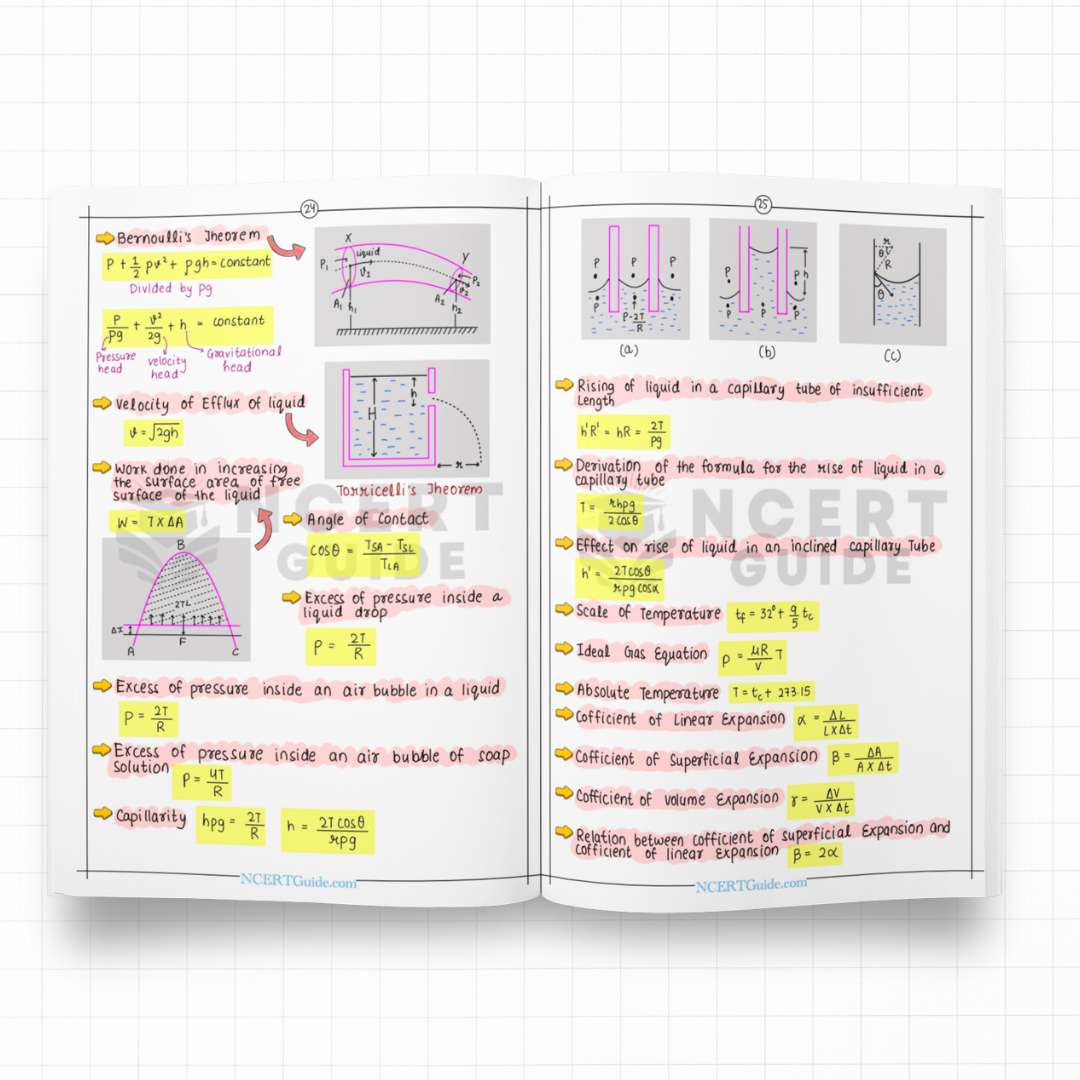 24
Bernoulli's Theorem
P + 1/2 ρv² + ρgh = constant
Divided by ρg
P/ρg + v²/2g + h = constant
Pressure head
velocity head
Gravitational head
X
liquid
P₁
V₁
Y
P₂
v₂
A₁
h₁
A₂
h₂
Velocity of Efflux of liquid
v = √2gh
H
h
r
Torricelli's Theorem
Work done in increasing
the surface area of free
surface of the liquid
W = T X ΔA
B
2TL
F
A
C
Angle of Contact
cosθ = (T_SA - T_SL)/T_LA
Excess of pressure inside a
liquid drop
P = 2T/R
Excess of pressure inside an air bubble in a liquid
P = 2T/R
Excess of pressure inside an air bubble of soap
solution
P = 4T/R
Capillarity
hρg = 2T/R
h = 2T cosθ/rρg
NCERTGuide.com
25
P P P
P P
P-2T/R
(a)
P P
h
P P P
(b)
r
θ
R
θ
(c)
Rising of liquid in a capillary tube of insufficient
Length
h'R' = hR = 2T/ρg
Derivation of the formula for the rise of liquid in a
capillary tube
T = rhρg/2cosθ
Effect on rise of liquid in an inclined capillary Tube
h' = 2Tcosθ/rρgcosα
Scale of Temperature t_f = 32° + 9/5 t_c
Ideal Gas Equation P = μR/V T
Absolute Temperature T = t_c + 273.15
Cofficient of Linear Expansion α = ΔL/L X Δt
Cofficient of Superficial Expansion β = ΔA/A X Δt
Cofficient of volume Expansion r = ΔV/V X Δt
Relation between cofficient of superficial Expansion and
cofficient of linear Expansion β = 2α
NCERTGuide.com
NCERT
GUIDE
NCERT
GUIDE